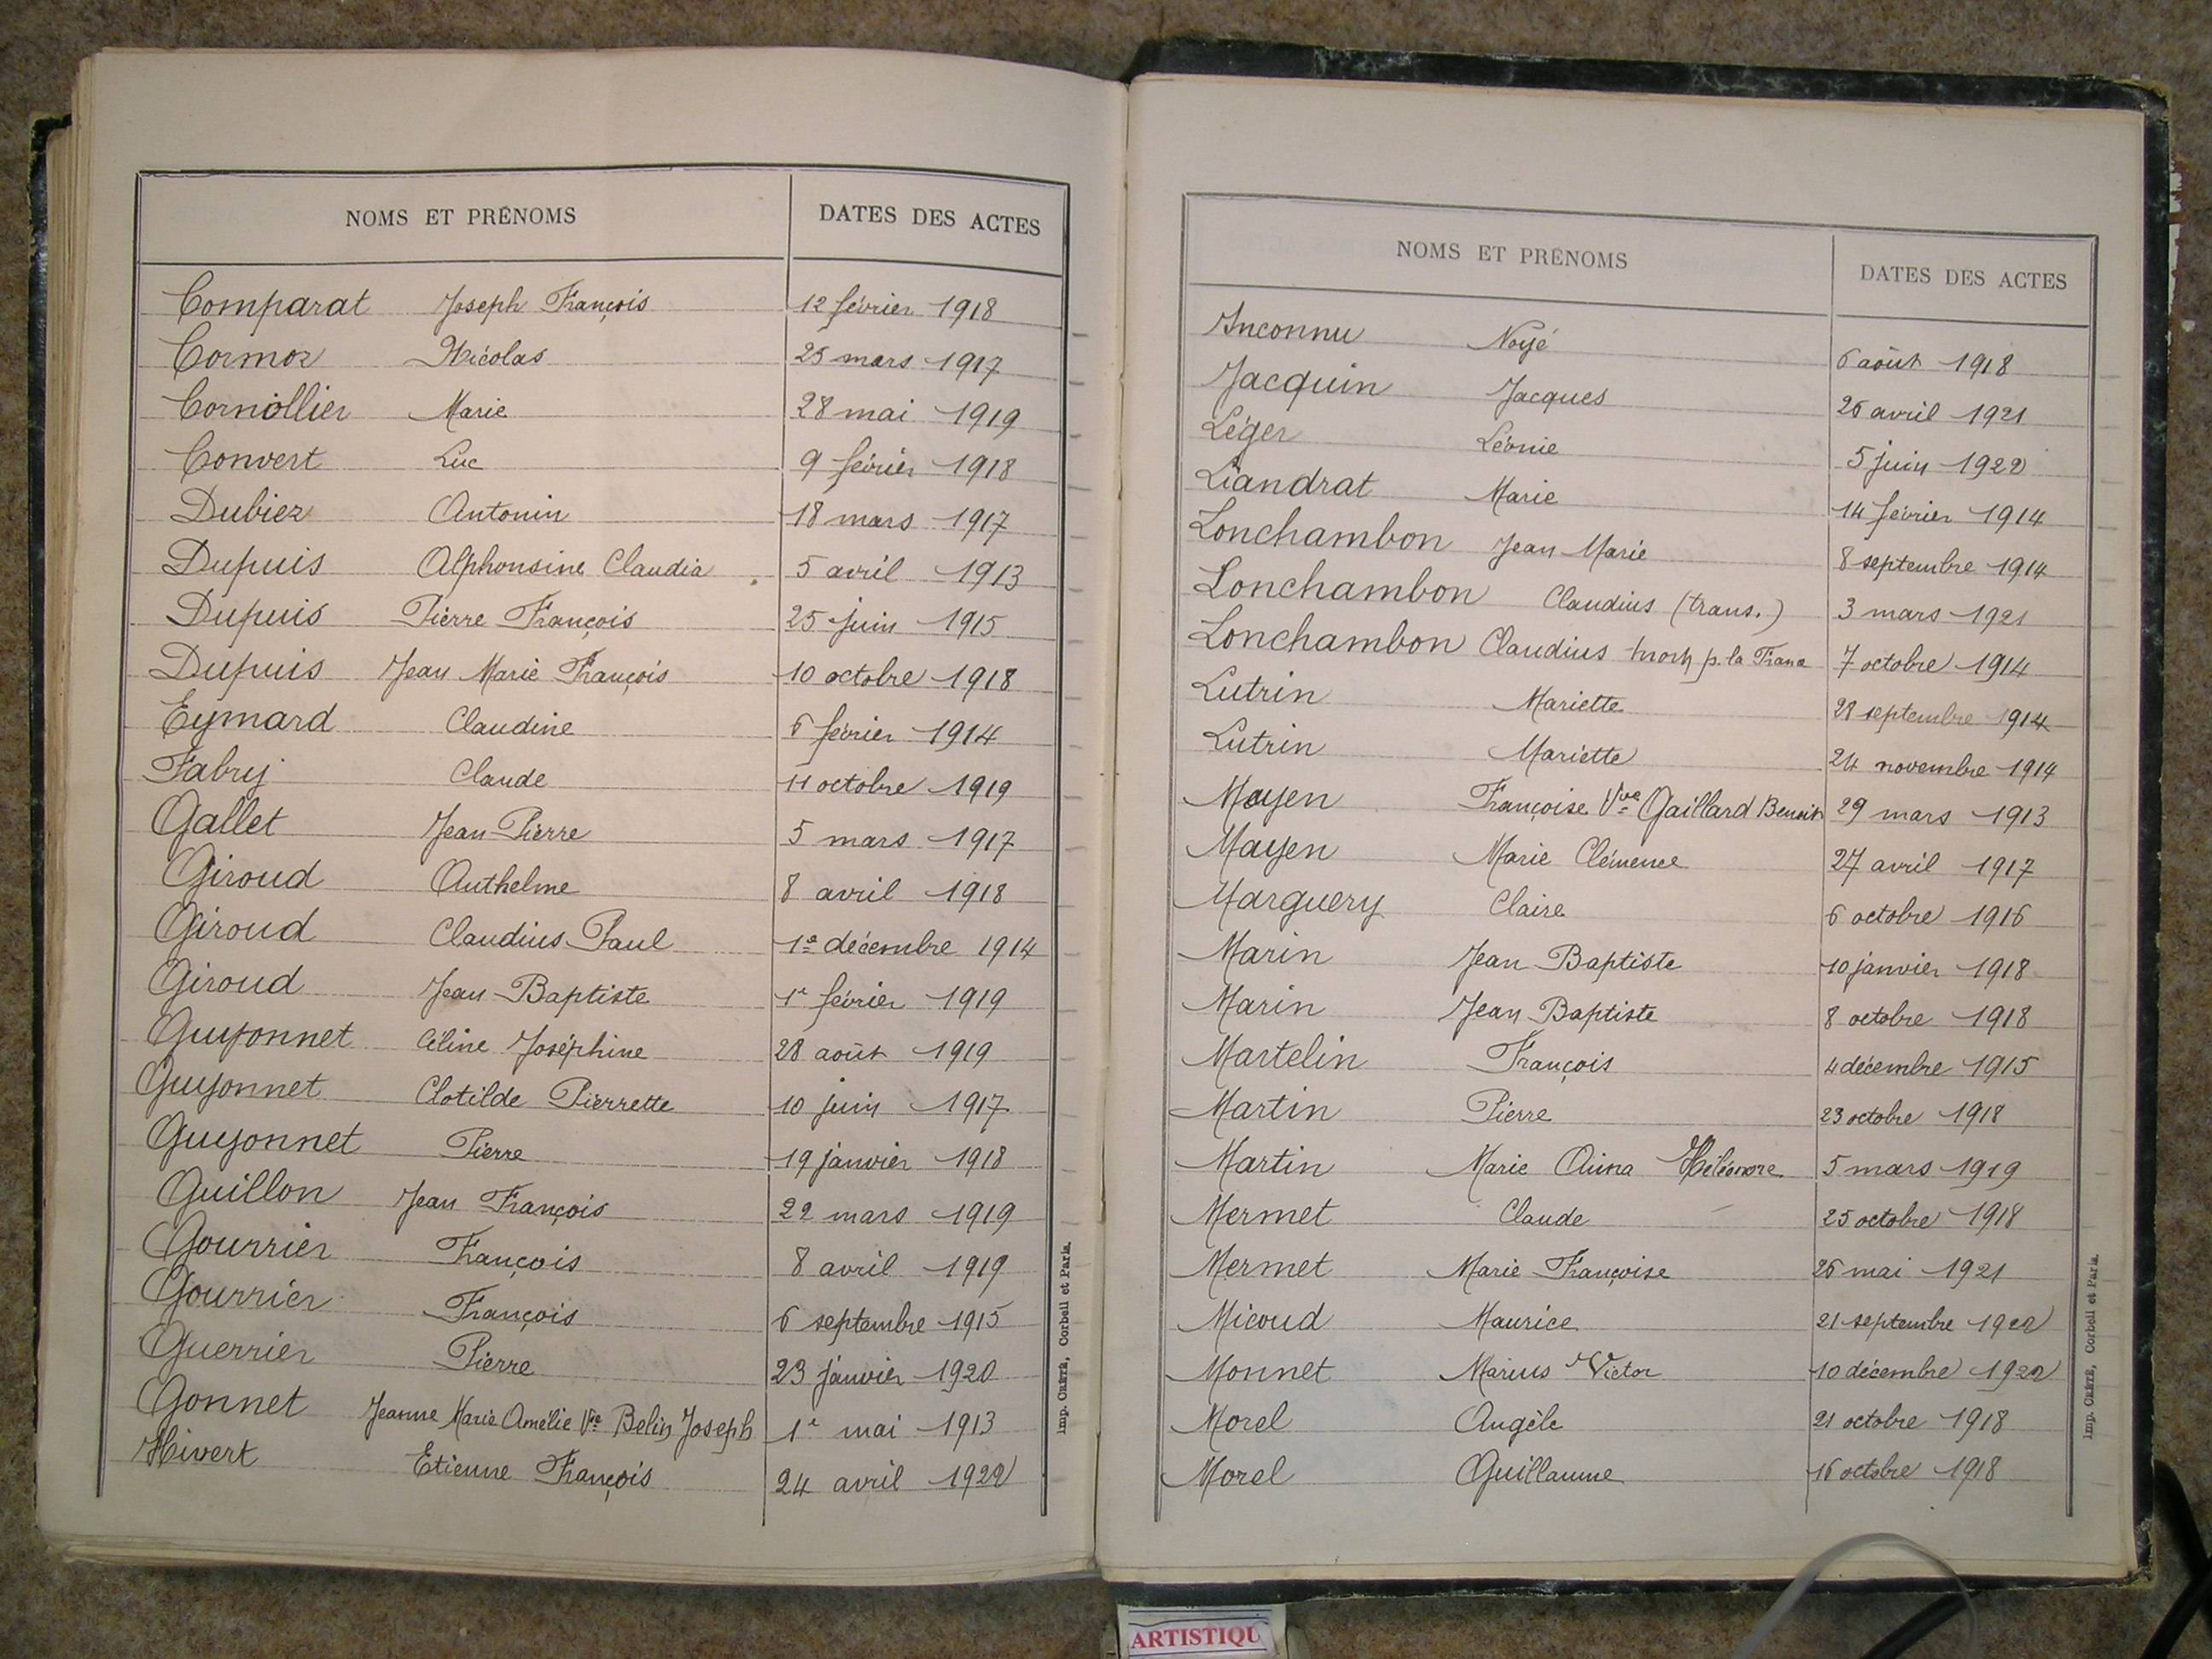 NOMS ET PRÉNOMS DATES DES ACTES
Comparat Joseph François 12 février 1918
Cormoz Nicolas 25 mars 1917
Cornollier Marie 28 mai 1919
Convert Luc 9 février 1918
Dubiez Antonin 18 mars 1917
Dupuis Alphonsine Claudia 5 avril 1913
Dupuis Pierre François 25 juin 1915
Dupuis Jean Marie François 10 octobre 1918
Eymard Claudine 6 février 1914
Fabry Claude 11 octobre 1919
Gallet Jean Pierre 5 mars 1917
Giroud Anthelme 8 avril 1918
Giroud Claudius Paul 1e décembre 1914
Giroud Jean Baptiste 1r février 1919
Guyonnet Céline Joséphine 28 août 1919
Guyonnet Clotilde Pierrette 10 juin 1917
Guyonnet Pierre 19 janvier 1918
Guillon Jean François 22 mars 1919
Gourrier François 8 avril 1919
Gourrier François 6 septembre 1915
Guerrier Pierre 23 janvier 1920
Gonnet Jeanne Marie Amélie Ve Belin Joseph 1r mai 1913
Hivert Etienne François 24 avril 1922
Imp. CRÉTÉ, Corbeil et Paris.
NOMS ET PRÉNOMS DATES DES ACTES
Inconnu Noyé 6 août 1918
Jacquin Jacques 26 avril 1921
Léger Léonie 5 juin 1922
Liandrat Marie 14 février 1914
Lonchambon Jean Marie 8 septembre 1914
Lonchambon Claudius (trans.) 3 mars 1921
Lonchambon Claudius mort p. la 7 octobre 1914
Lutrin Mariette 28 septembre 1914
Lutrin Mariette 24 novembre 1914
Mayen Françoise Vve Gaillard Benoit 29 mars 1913
Mayen Marie Clémence 27 avril 1917
Marguery Claire 6 octobre 1916
Marin Jean Baptiste 10 janvier 1918
Marin Jean Baptiste 8 octobre 1918
Martelin François 4 décembre 1915
Martin Pierre 23 octobre 1918
Martin Marie Héléonore 5 mars 1919
Mermet Claude 25 octobre 1918
Mermet Marie Françoise 26 mai 1921
Micoud Maurice 21 septembre 1922
Monnet Marius Victor 10 décembre 1922
Morel Angèle 21 octobre 1918
Morel Guillaume 16 octobre 1918
Imp. CRÉTÉ, Corbeil et Paris.
ARTISTIQU